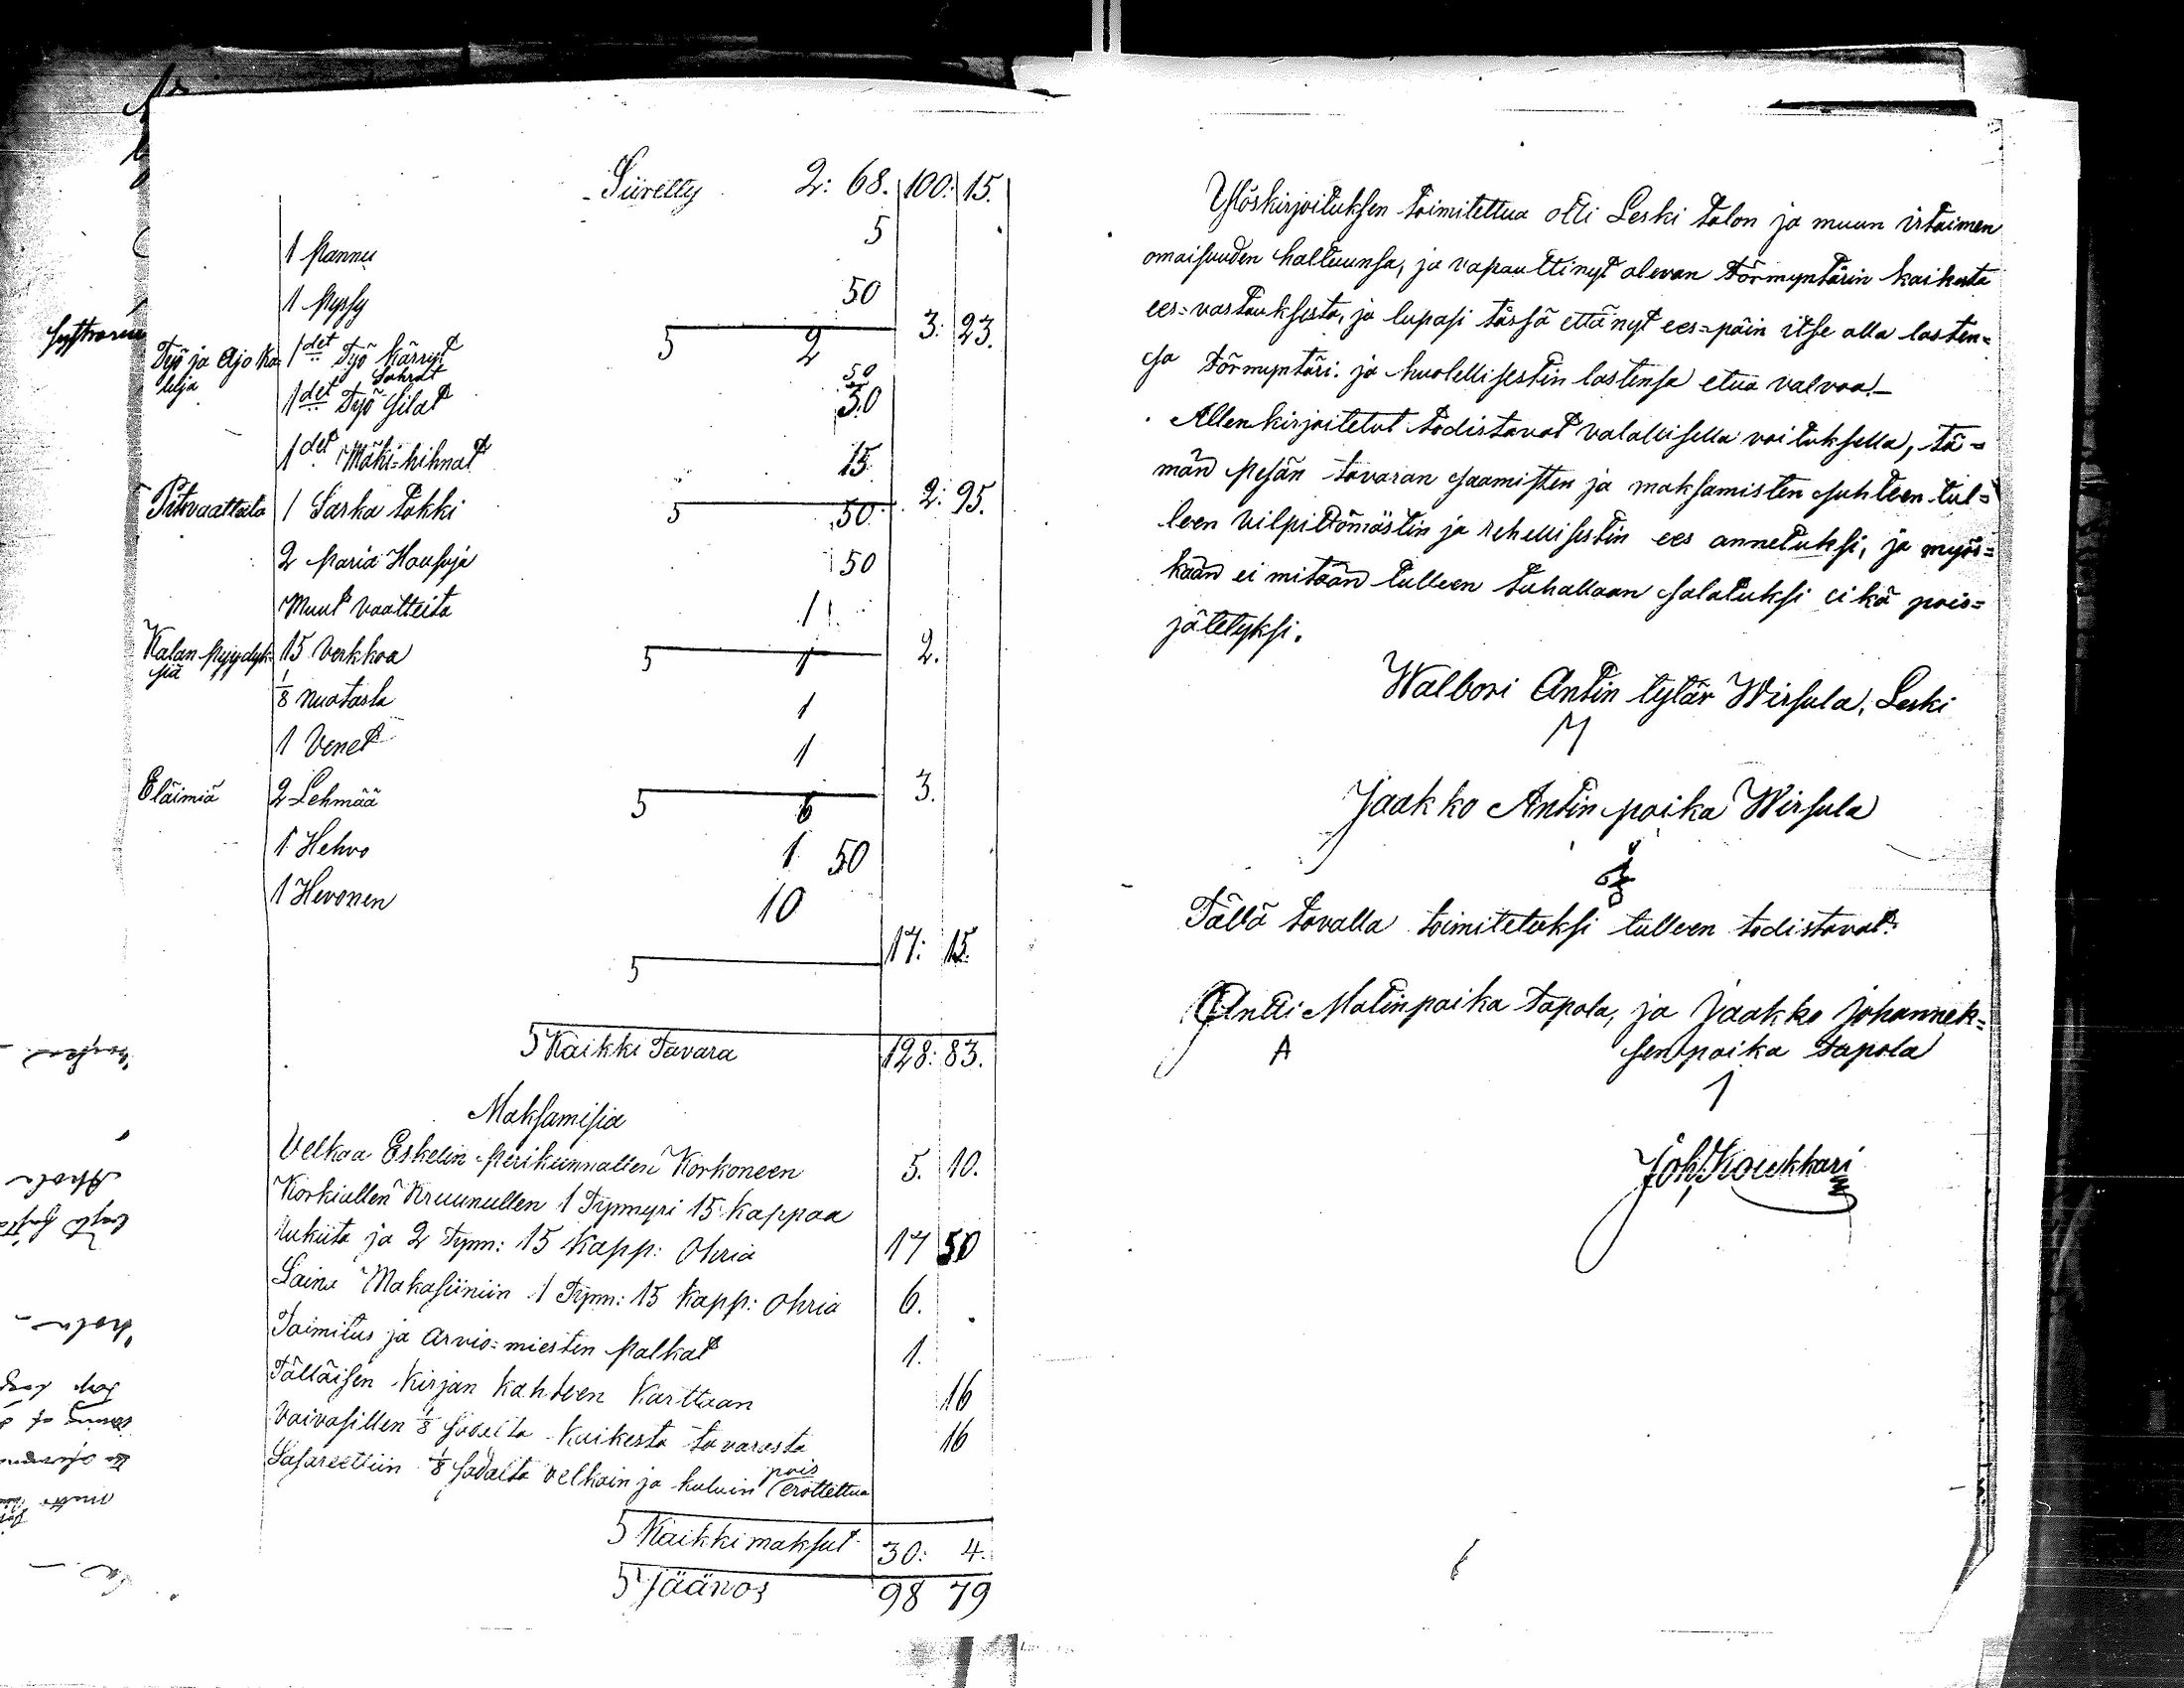 Siiretty 2: 68. 100: 15.
1 Pannu 5
1 Pyssy 50
5 3: 23.
Työ ja Ajo Ka- 1 det Työ kärryt 2
luja Sahrat 50
1 det Työ Silat 50
1 det Mäki=hihnat 15
5 2: 95.
Pitovaatteita 1 Sarka Takki 50
2 Paria Housuja 50
Muut vaatteita 1
5 2.
Kalan pyydyk- 15 Verkkoa 1
siä
1/8 nuotasta 1
1 Venet 1
5 3.
Eläimiä 2 Lehmää 6
1 Hehvo 1 50
1 Hevonen 10
5 17: 15.
5 Kaikki Tavara 128: 83.
Maksamisia
Velkaa Eskelin Perikunnallen Korkoneen 5. 10.
Korkiallen Kruunullen 1 Tynnyri 15 Kappaa
rukiita ja 2 Tynn: 15 Kapp: Ohria 17 50
Laina Makasiiniin 1 Tynn: 15 Kapp: Ohria 6.
Toimitus ja arvio=miesten Palkat 1.
Tälläisen Kirjan Kahteen Karttaan 16
Vaivasillen 1/8 sadalta kaikesta tavarasta 16
Lasareettiin 1/8 sadalta velkain ja kuluin pois erotettua
5 Kaikki maksut 30: 4.
5 Jäänös 98 79
Ylöskirjoituksen toimitettua otti Leski talon ja muun irtaimen
omaisuuden haltuunsa, ja vapauttinyt olevan Förmyntärin kaikesta
ees=vastauksesta, ja lupasi tässä että nyt ees=päin itse olla lasten=
sa Förmyntäri. ja huolellisestin lastensa etua valvoa.—
Allenkirjoitetut todistavat valallisella voituksella, tä=
män pesän tavaran saamisten ja maksamisten suhteen tul=
leen vilpittömästin ja rehellisestin ees annetuksi, ja myös=
kään ei mitään tulleen tahallaan salatuksi eikä pois=
jätetyksi.
Walbori Antin tytär Wirsula, Leski
Jaakko Antin poika Wirsula
Tällä tavalla toimitetuksi tulleen todistavat:
Antti Matinpoika Tapola, ja Jaakko Johannek=
A senpoika Tapola
Joh. Koukkari